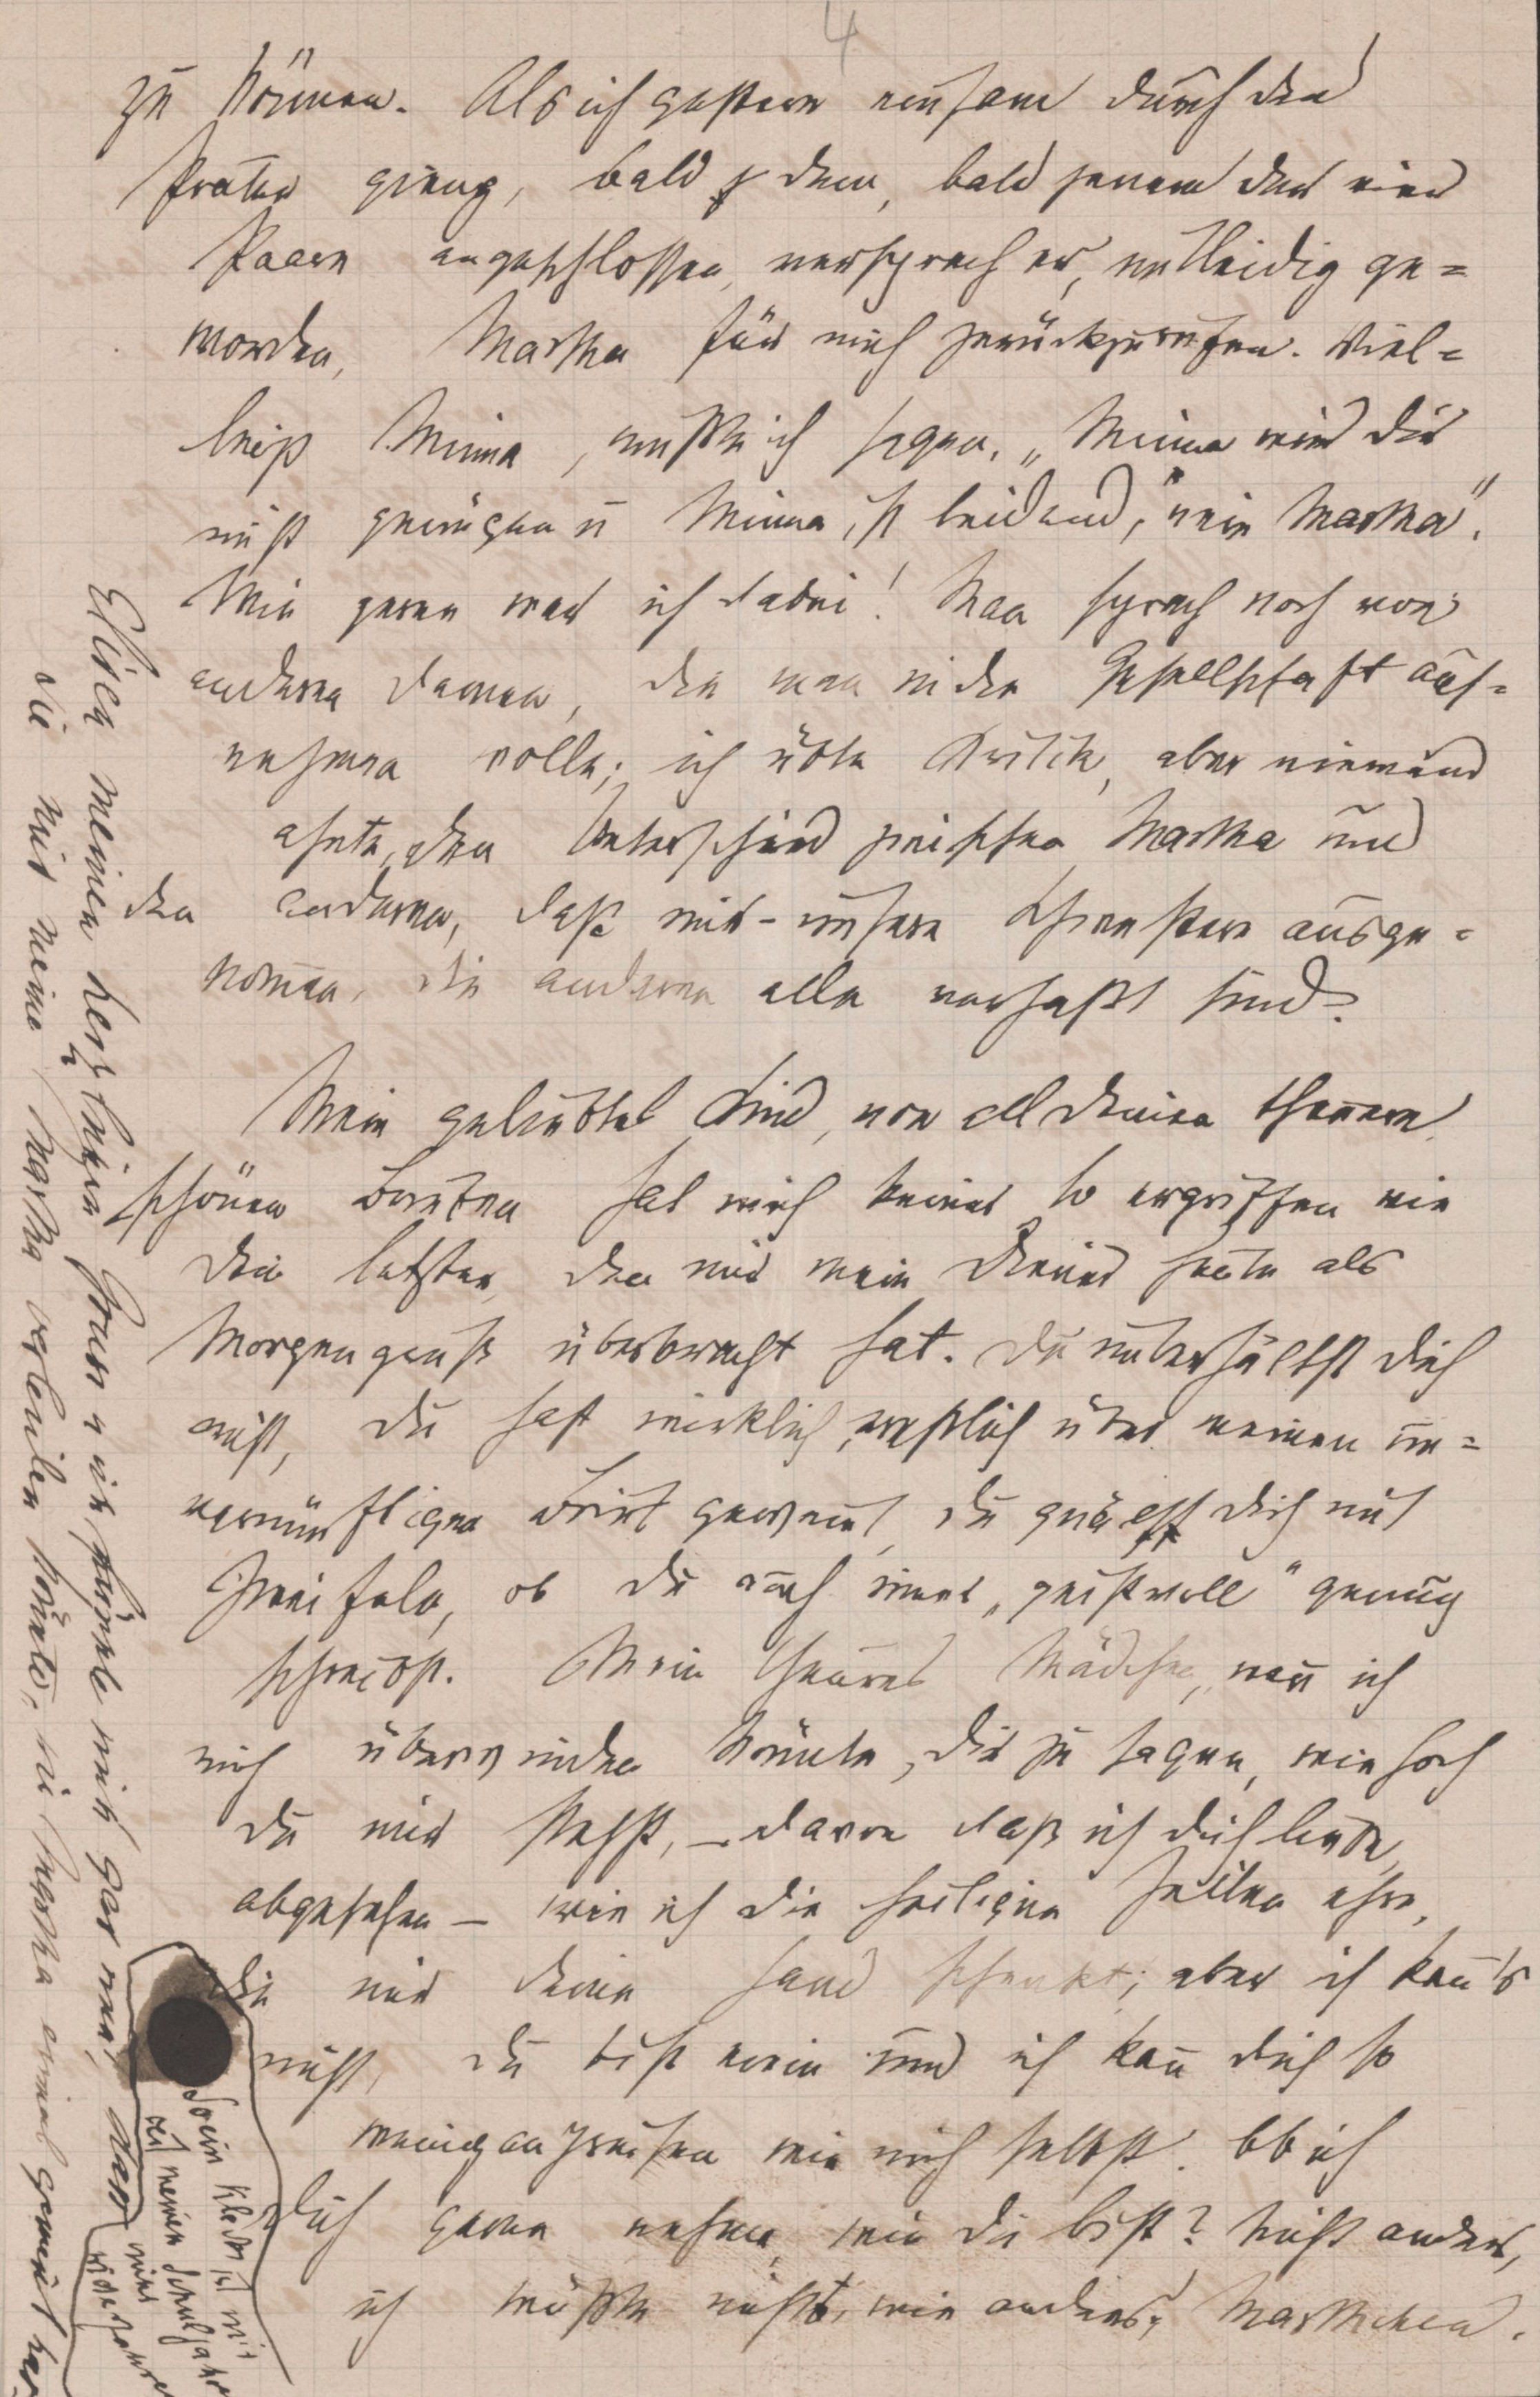 4
zu können. Als ich gestern einsam durch den
Prater gieng, bald dem, bald jenem der vier
Paare angeschlossen, versprach er, mitleidig ge=
worden, Martha für mich zurückzurufen. Viel=
leicht Minna, mußte ich sagen. „Minna wird dir
nicht genügen u Minna ist leidend, nein Martha“.
Wie gerne war ich dabei! Man sprach noch von
anderen Damen, die man in die Gesellschaft auf=
nehmen solle; ich übte Kritik, aber niemand
ahnte den Unterschied zwischen Martha und
den anderen, daß mir – unsere Schwestern ausge=
nom̄en, die anderen alle verhaßt sind.
Mein geliebtes Kind, von all deinen theuern,
schönen Briefen hat mich keiner so ergriffen wie
der letzte, den mir mein Diener heute als
Morgengruß überbracht hat. Du unterhältst dich
nicht, du hast wirklich, ernstlich über meinen un=
vernünftigen Brief geweint, du quälst dich mit
Zweifeln, ob du auch immer „geistvoll“ genug
schreibst. Mein theures Mädchen, wen̄ ich
mich überwinden könnte, dir zu sagen, wie hoch
du mir stehst, – davon daß ich dich liebe,
abgesehen – wie ich die heiligen Zeilen ehre,
die mir deine Hand schenkt; aber ich kan̄'s
nicht, du bist mein und ich kan̄ dich so
wenig anpreisen wie mich selbst. Ob ich
dich gerne nehme, wie du bist? Nicht anders,
ich wüßte nicht, wie anders, Marthchen.
Elisen meinen herzlichen Gruss u ich könnte mich gar nicht
die mir meine Martha verleiden könnte, die Martha einmal gemeint
So ein Klecks ist mir
seit meinen Schuljahren
nicht
widerfahren